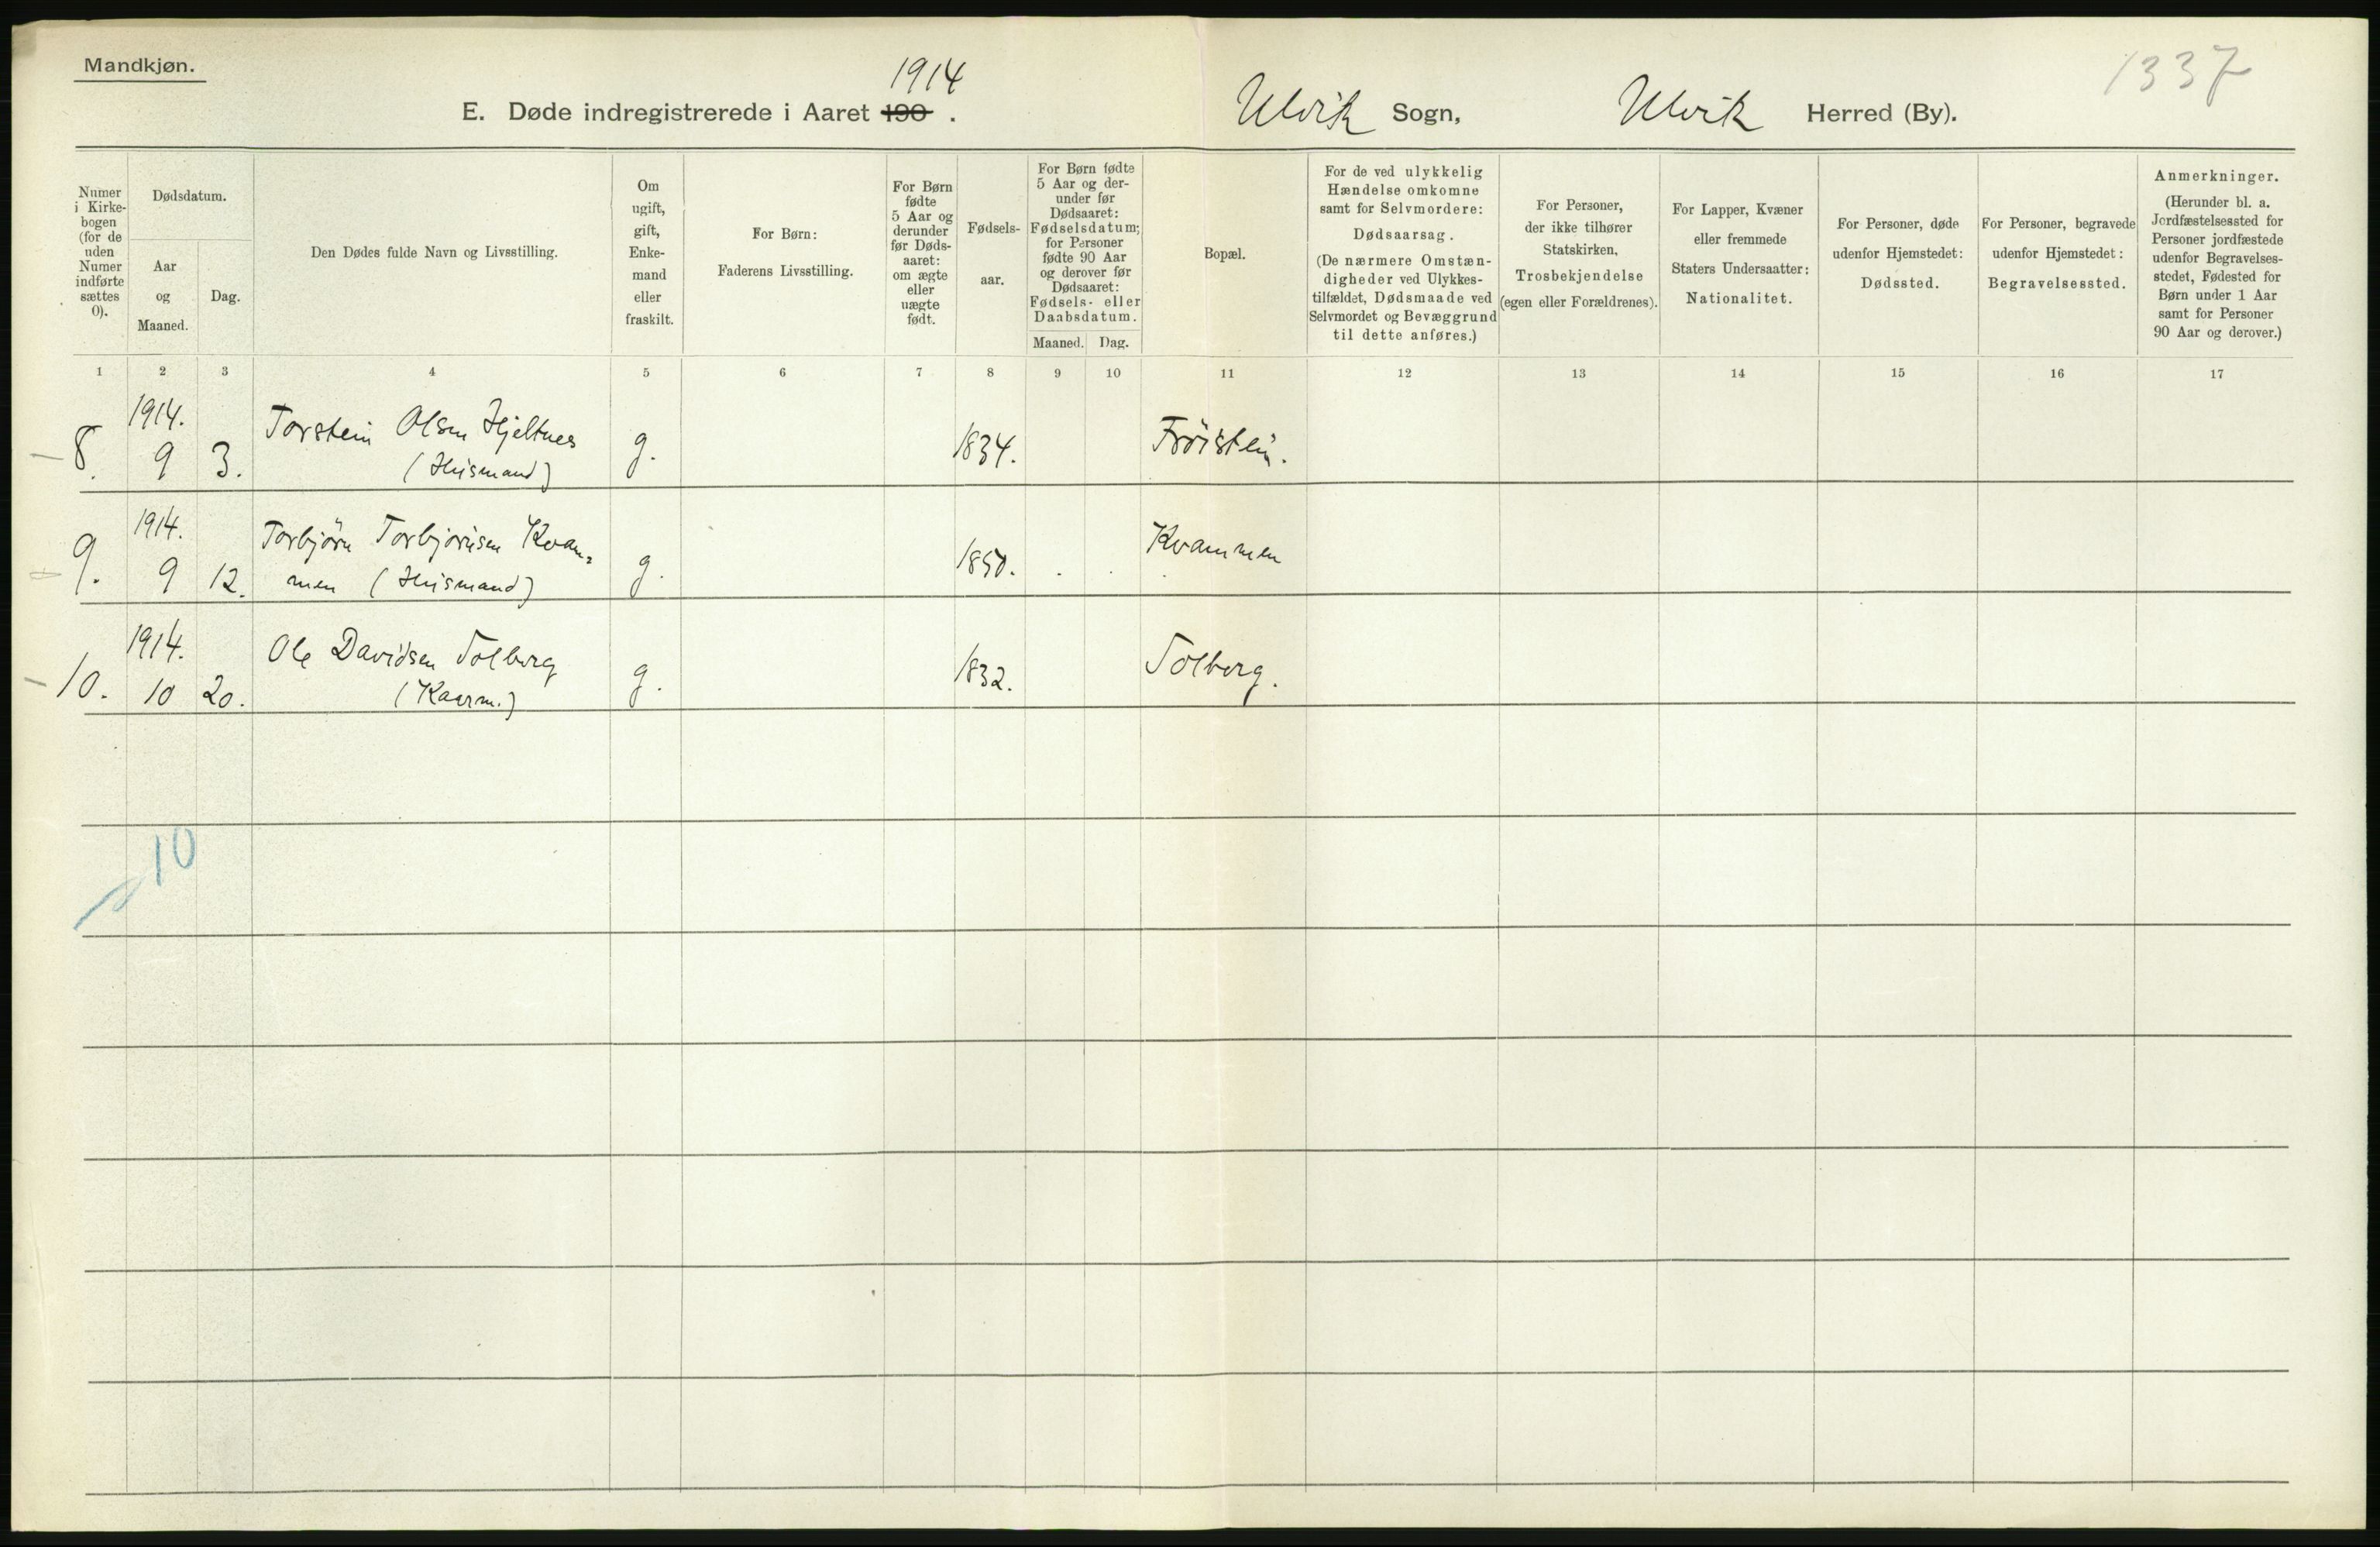 Mandkjøn.
1337
1914
E. Døde indregistrerede i Aaret 190 . Ulvik Sogn, Ulvik Herred (By).
Numer
i Kirke-
bogen
(for de
uden
Numer
indførte
sættes
0).
Dødsdatum.
Aar
og
Maaned.
Dag.
Den Dødes fulde Navn og Livsstilling.
Om
ugift,
gift,
Enke-
mand
eller
fraskilt.
For Børn:
Faderens Livsstilling.
For Børn
fødte
5 Aar og
derunder
før Døds-
aaret:
om ægte
eller
uægte
født.
Fødsels-
aar.
For Børn fødte
5 Aar og der-
under før
Dødsaaret:
Fødselsdatum;
for Personer
fødte 90 Aar
og derover før
Dødsaaret:
Fødsels- eller
Daabsdatum.
Maaned. Dag.
Bopæl.
For de ved ulykkelig
Hændelse omkomne
samt for Selvmordere:
Dødsaarsag.
(De nærmere Omstæn-
digheder ved Ulykkes-
tilfældet, Dødsmaade ved
Selvmordet og Bevæggrund
til dette anføres.)
For Personer,
der ikke tilhører
Statskirken,
Trosbekjendelse
(egen eller Forældrenes).
For Lapper, Kvæner
eller fremmede
Staters Undersaatter:
Nationalitet.
For Personer, døde
udenfor Hjemstedet:
Dødssted.
For Personer, begravede
udenfor Hjemstedet:
Begravelsessted.
Anmerkninger.
(Herunder bl. a.
Jordfæstelsessted for
Personer jordfæstede
udenfor Begravelses-
stedet, Fødested for
Børn under 1 Aar
samt for Personer
90 Aar og derover.)
1 2 3 4 5 6 7 8 9 10 11 12 13 14 15 16 17
1914.
8. 9 3. Torstein Olsen Hjeltnes g. 1834. Fröistein.
(Husmand)
1914.
9. 9 12. Torbjörn Torbjörnsen Kvam= g. 1850. Kvammen
men (Husmand)
1914.
10. 10 20. Ole Davidsen Solberg g. 1832. Solberg.
(Kaarm.)
10